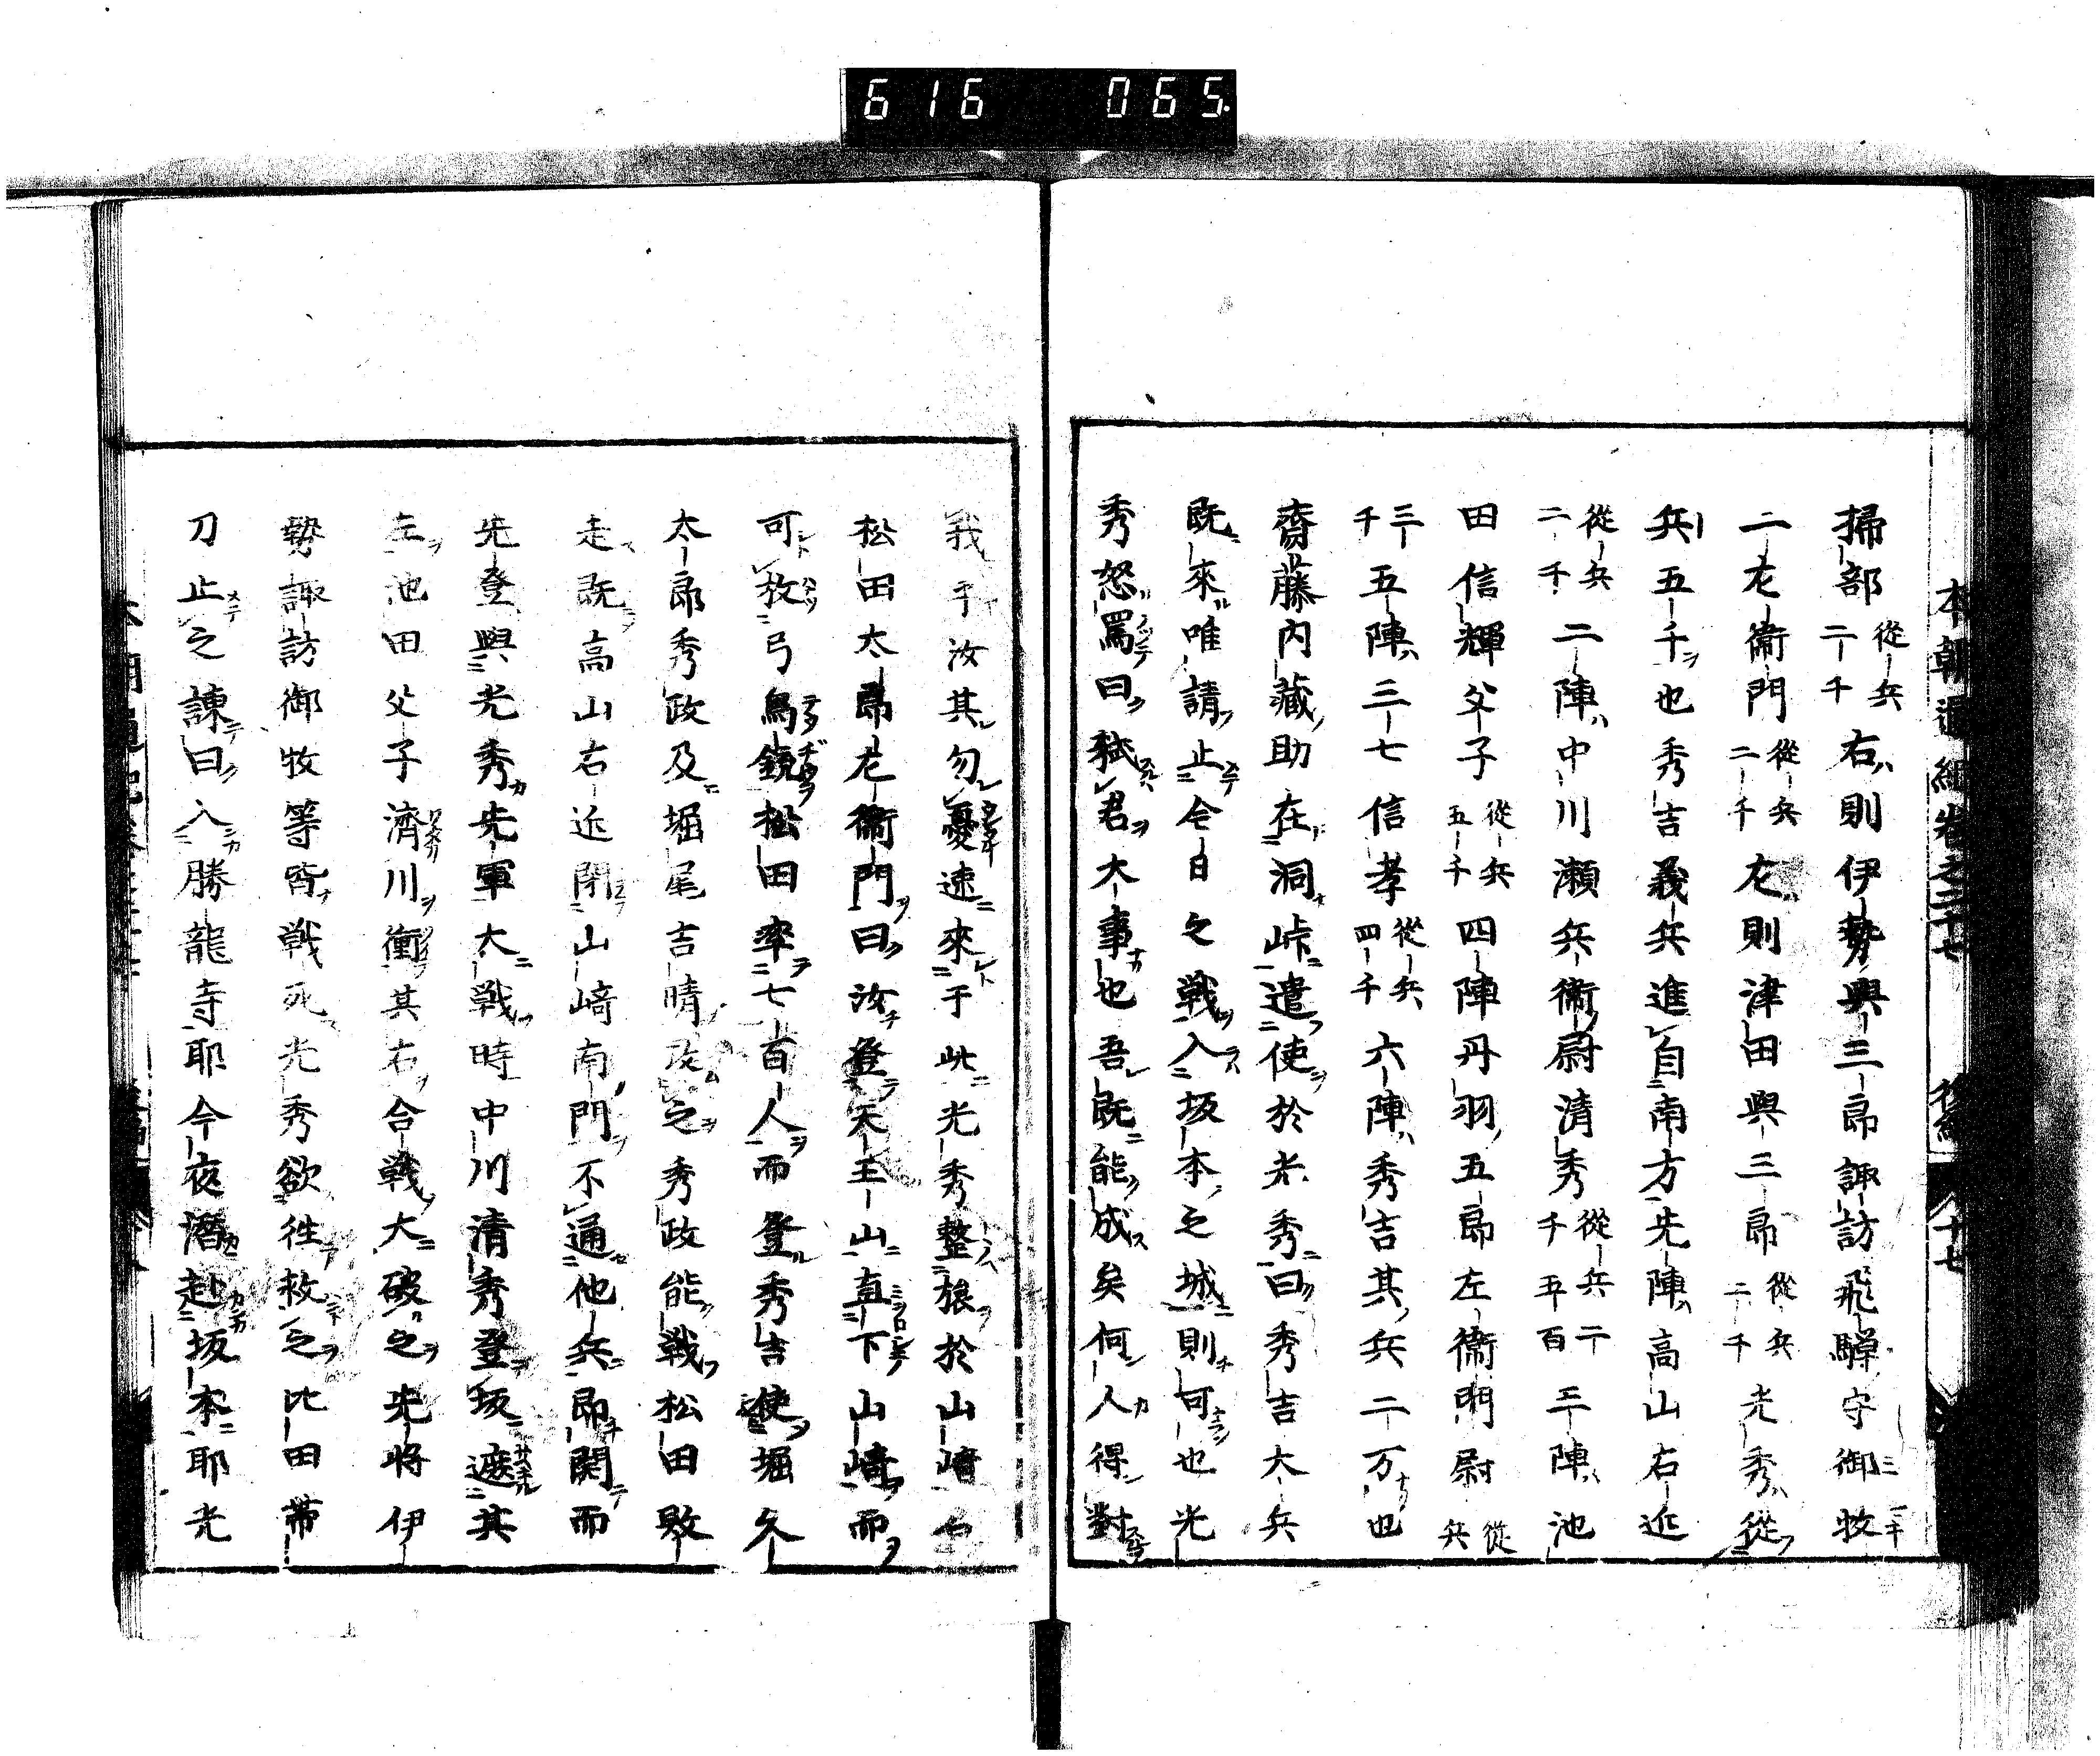 616 065
掃部從兵二千右則伊勢與三郎諏訪飛騨守御牧三二千
二左衞門從兵二千左則津田與三郎從兵二千光秀從
兵五千也秀吉義兵進自南方先陣高山右近
從兵二千二陣中川瀬兵衞尉清秀從兵二千五百三陣池
田信輝父子從兵五千四陣丹羽五郎左衞門尉從兵
三千五陣三七信孝從兵四千六陣秀吉其兵二万也
齋藤内藏助在洞峠遣使於光秀曰秀吉大兵
既來唯請止今日之戦入坂本之城則可也光
秀怒罵曰弑君大事也吾既能成矣何人得對
我乎汝其勿憂速來于此光秀整旅於山崎召
松田太郎左衞門曰汝登天王山直下山崎而
可放弓鳥銃松田率七百人而登秀吉使堀久
太郎秀政及堀尾吉晴攻之秀政能戦松田敗
走既高山右近閉山崎南門不通他兵即開而
先登與光秀先軍大戦時中川清秀登坂遮其
左池田父子濟川衝其右合戦大破之先将伊
勢諏訪御牧等皆戦死光秀欲往救之比田帯
刀止之諫曰入勝龍寺耶今夜潛赴坂本耶光